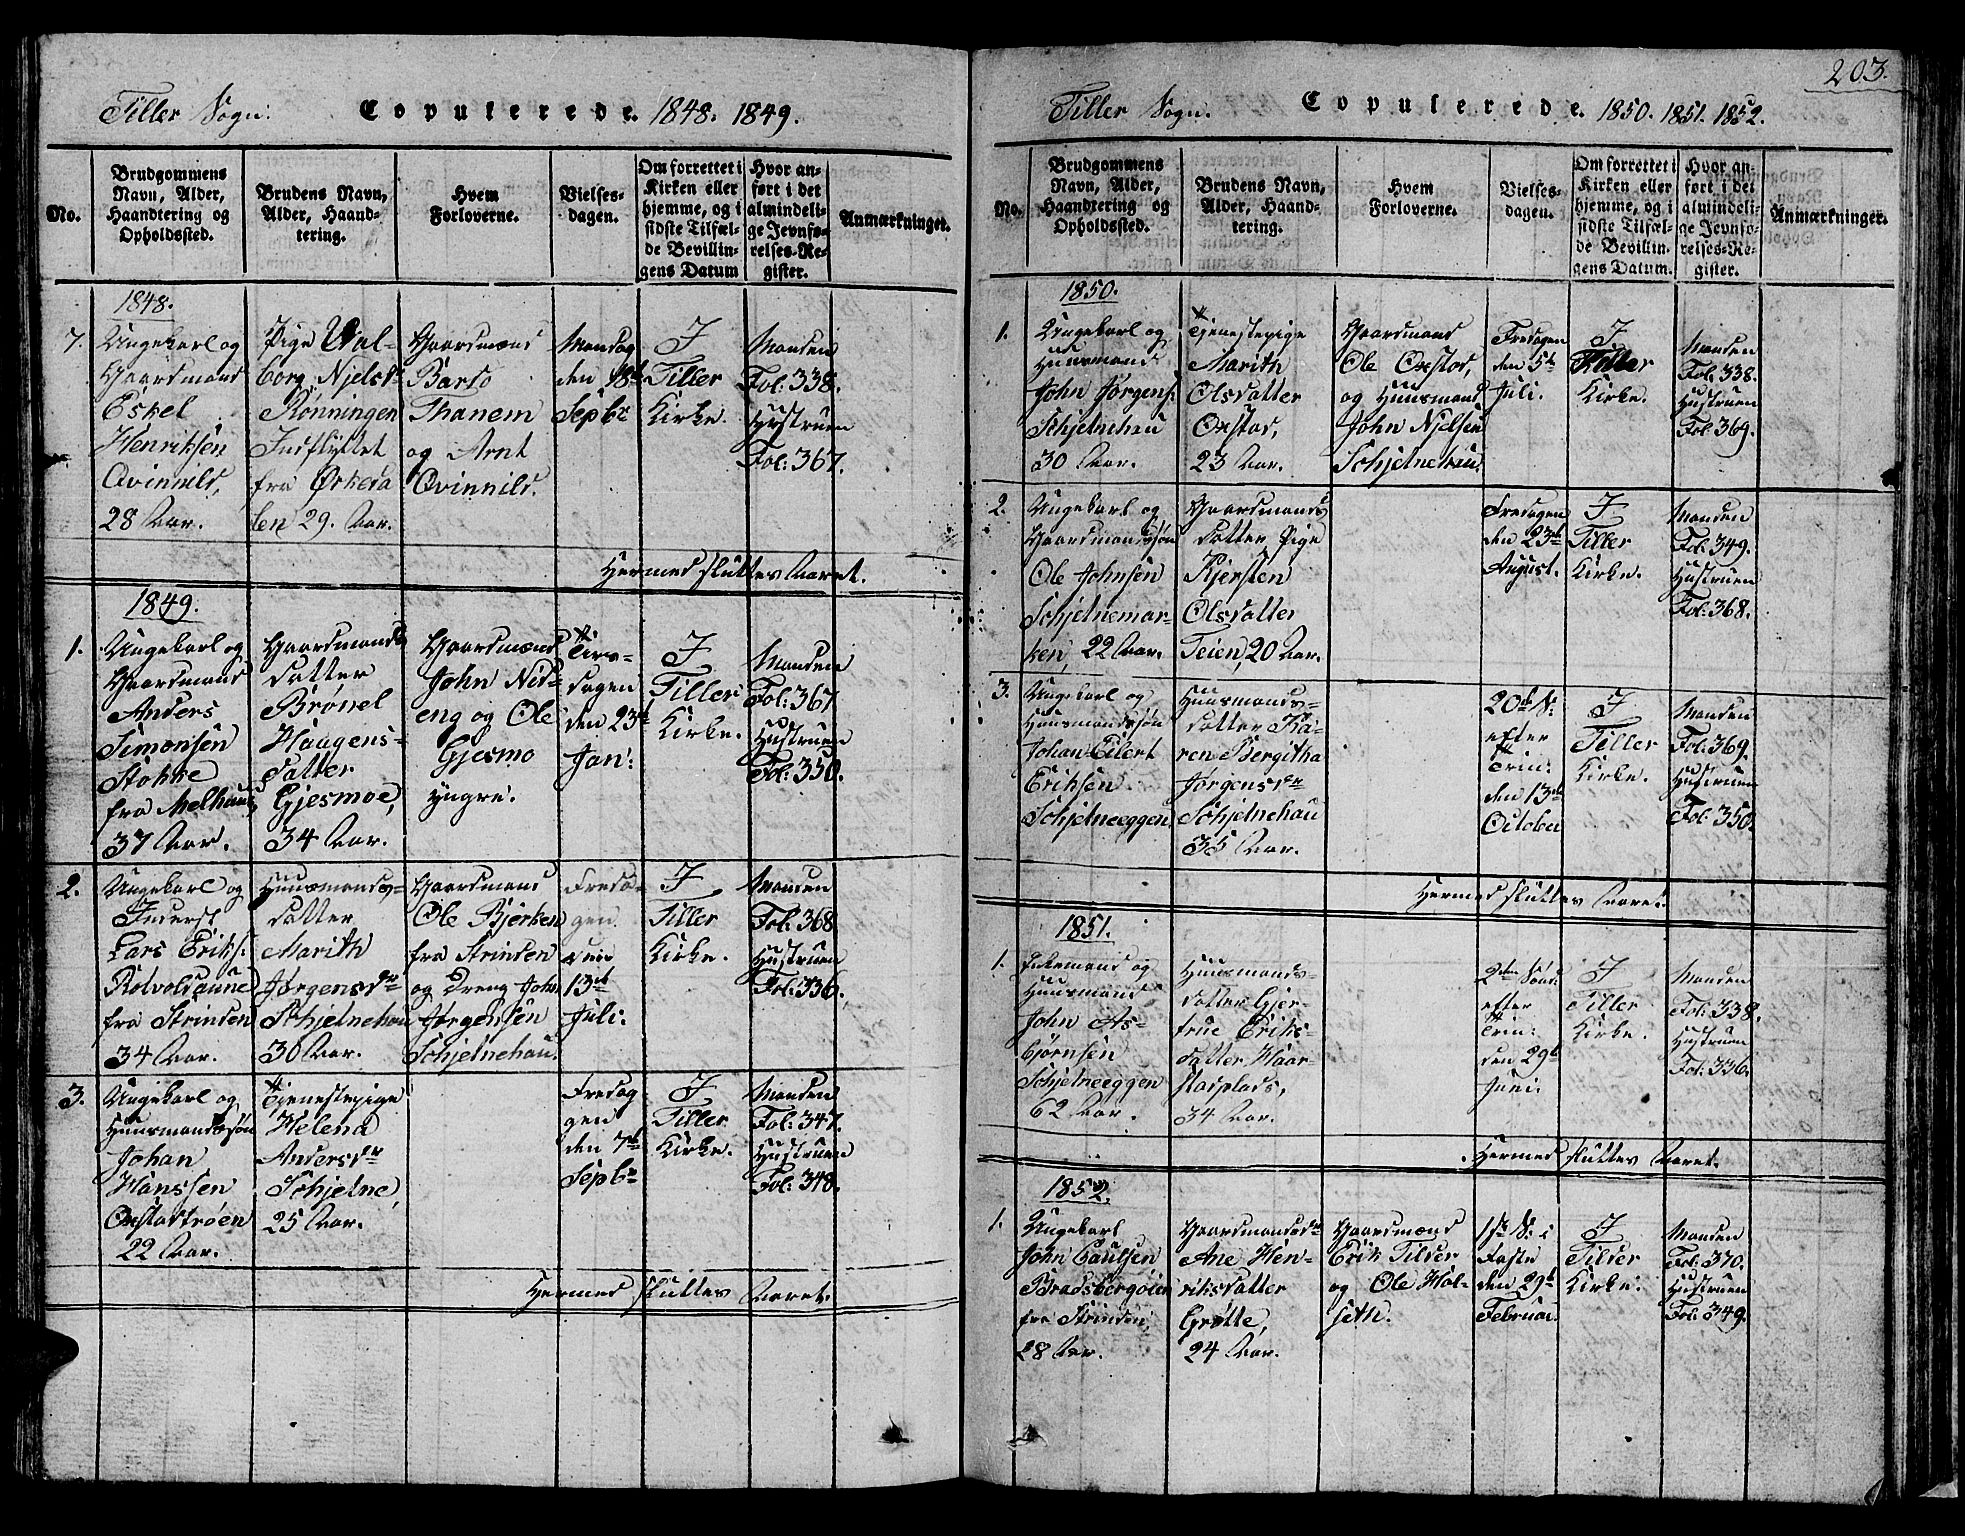 Tiller Sogn. Copulerede. 1848. 1849.
No.
Brudgommens
Navn, Alder,
Haandtering og
Opholdssted.
Brudens Navn,
Alder, Haand-
tering.
Hvem
Forloverne.
Vielses-
dagen.
Om forrettet i
Kirken eller
hjemme, og i
sidste Tilfæl-
de Bevillin-
gens Datum
Hvor an-
ført i det
almindeli-
ge Jevnfø-
relses-Re-
gister.
Anmærkninger.
1848.
7.
Ungekarl og
Gaardmand
Eskel
Henriksen
Qvinnild,
28 Aar.
Pige Val-
borg Njelsdr
Rønningen
Indflyttet
fra Ørkeda
len 29. Aar.
Gaardmænd
Bardo
Thanem
og Arnt
Qvinnild.
Mandag
den 18de
Sepbr
I
Tiller
Kirke.
Manden
Fol: 338.
Hustruen
Fol: 367.
Hermed sluttes Aaret.
1849.
1.
Ungekarl og
Gaardmand
Anders
Simonsen
Stokke
fra Melhuus,
37 Aar.
Gaardmands
datter
Brønel
Haagens-
datter
Gjesmoe,
34 Aar.
Gaardmænd
John Nid-
eng og Ole
Gjesmo
yngre.
Tirs-
dagen
den 23de
Jan:
I
Tiller
Kirke.
Manden
Fol: 367
Hustruen
Fol: 350.
2.
Ungekarl og
Inderst
Lars Eriks:
Rotvoldaune
fra Strinden
34 Aar.
Huusmands-
datter
Marith
Jørgensdr
Schjelnehau
30 Aar.
Gaardmand
Ole Bjerken
fra Strinden
og Dreng John
Jørgensen
Schjelnehau.
Freda-
gen
den
13de
Juli.
I
Tiller
Kirke.
Manden
Fol: 368
Hustruen
Fol: 336.
3.
Ungekarl og
Huusmandssøn
Johan
Hanssen
Oxstadtrøen
22 Aar.
Tjenestepige
Helena
Andersdr
Schjelne,
25 Aar.
Fredag
gen
den 7de
Sepbr
I
Tiller
Kirke.
Manden
Fol: 347.
Hustruen
Fol: 348.
Hermed sluttes Aaret.
203.
Tiller Sogn. Copulerede. 1850. 1851. 1852.
No.
Brudgommens
Navn, Alder,
Haandtering og
Opholdssted.
Brudens Navn,
Alder, Haand-
tering.
Hvem
Forloverne.
Vielses-
dagen.
Om forrettet i
Kirken eller
hjemme, og i
sidste Tilfæl-
de Bevillin-
gens Datum.
Hvor an-
ført i det
almindeli-
ge Jevnfø-
relses-Re-
gister.
Anmærkninger.
1850.
1.
Ungekarl og
Huusmand
John Jørgens:
Schjelnehau
30 Aar.
Tjenestepige
Marith
Olsdatter
Oxstad,
23 Aar.
Gaardmand
Ole Oxstad,
og Huusmand
John Njelsen
Schjelnehau.
Fredagen
den 5te
Juli.
I
Tiller
Kirke.
Manden
Fol: 338.
Hustruen
Fol: 369.
2.
Ungekarl og
Gaardmandssøn
Ole Johnsen
Schjelnemar-
ken, 22 Aar.
Gaardmands
datter Pige
Kjersten
Olsdatter
Teien, 20 Aar.
Fredagen
den 23de
August.
I
Tiller
Kirke.
Manden
Fol: 349.
Hustruen
Fol: 368.
3.
Ungekarl og
Huusmandssøn
Johan Eilert
Eriksen
Schjelneeggen
Huusmands-
datter Ka-
ren Bergitha
Jørgensdr
Schjelnehau
35 Aar.
20de S:
efter
Trin:
den 13de
October
I
Tiller
Kirke.
Manden
Fol: 369.
Hustruen
Fol: 350.
Hermed sluttes Aaret.
1851.
1.
Enkemand og
Huusmand
John As-
bjørnsen
Schjelneeggen
62 Aar.
Huusmands-
datter Gjer-
true Eriks-
datter Haar-
stadplads,
34 Aar.
2den Sønd:
efter
Trin:
den 29de
Juni.
I
Tiller
Kirke.
Manden
Fol: 338.
Hustruen
Fol: 336.
Hermed sluttes Aaret.
1852.
1.
Ungekarl
John Paulsen
Bradsbergøien
fra Strinden,
28 Aar.
Gaardmandsdr
Ane Hen-
riksdatter
Grøtte,
24 Aar.
Gaardmænd
Erik Tilder
og Ole Hal-
seth.
1ste S: i
Faste
den 29de
Februar.
I
Tilder
Kirke.
Manden
Fol: 370.
Hustruen
Fol: 349.